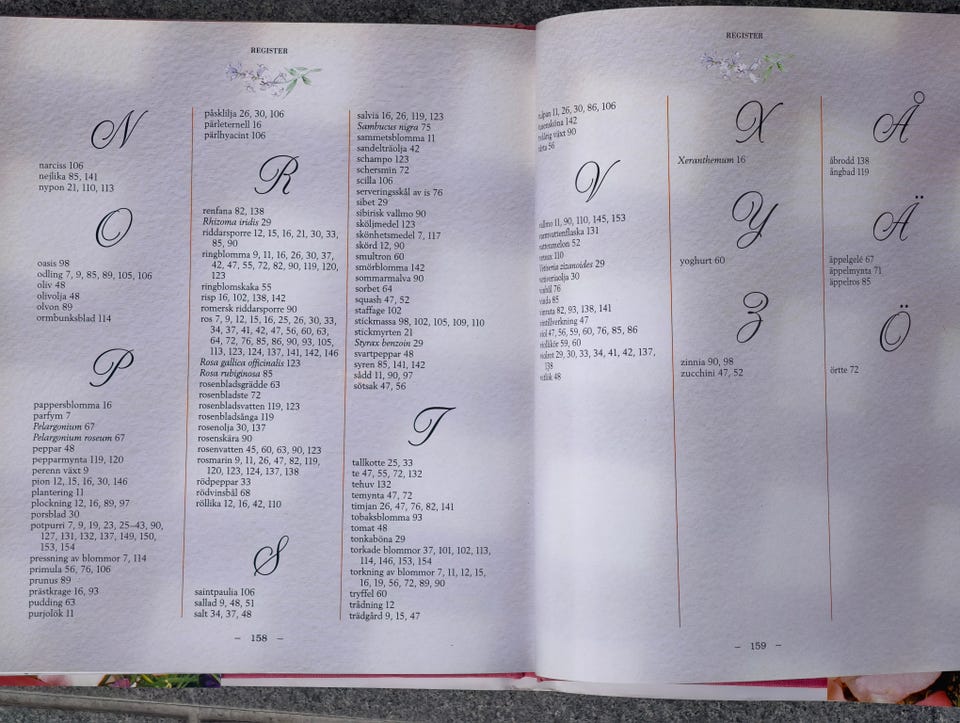 REGISTER
N
narciss 106
nejlika 85, 141
nypon 21, 110, 113
O
oasis 98
odling 7, 9, 85, 89, 105, 106
oliv 48
olivolja 48
olvon 89
ormbunksblad 114
P
pappersblomma 16
parfym 7
Pelargonium 67
Pelargonium roseum 67
peppar 48
pepparmynta 119, 120
perenn växt 9
pion 12, 15, 16, 30, 146
plantering 11
plockning 12, 16, 89, 97
porsblad 30
potpurri 7, 9, 19, 23, 25–43, 90,
127, 131, 132, 137, 149, 150,
153, 154
pressning av blommor 7, 114
primula 56, 76, 106
prunus 89
prästkrage 16, 93
pudding 63
purjolök 11
påsklilja 26, 30, 106
pärleternell 16
pärlhyacint 106
R
renfana 82, 138
Rhizoma iridis 29
riddarsporre 12, 15, 16, 21, 30, 33,
85, 90
ringblomma 9, 11, 16, 26, 30, 37,
42, 47, 55, 72, 82, 90, 119, 120,
123
ringblomskaka 55
risp 16, 102, 138, 142
romersk riddarsporre 90
ros 7, 9, 12, 15, 16, 25, 26, 30, 33,
34, 37, 41, 42, 47, 56, 60, 63,
64, 72, 76, 85, 86, 90, 93, 105,
113, 123, 124, 137, 141, 142, 146
Rosa gallica officinalis 123
Rosa rubiginosa 85
rosenbladsgrädde 63
rosenbladste 72
rosenbladsvatten 119, 123
rosenbladsånga 119
rosenolja 30, 137
rosenskära 90
rosenvatten 45, 60, 63, 90, 123
rosmarin 9, 11, 26, 47, 82, 119,
120, 123, 124, 137, 138
rödpeppar 33
rödvinsbål 68
röllika 12, 16, 42, 110
S
saintpaulia 106
sallad 9, 48, 51
salt 34, 37, 48
salvia 16, 26, 119, 123
Sambucus nigra 75
sammetsblomma 11
sandelträolja 42
schampo 123
schersmin 72
scilla 106
serveringsskål av is 76
sibet 29
sibirisk vallmo 90
sköljmedel 123
skönhetsmedel 7, 117
skörd 12, 90
smultron 60
smörblomma 142
sommarmalva 90
sorbet 64
squash 47, 52
staffage 102
stickmassa 98, 102, 105, 109, 110
stickmyrten 21
Styrax benzoin 29
svartpeppar 48
syren 85, 141, 142
sådd 11, 90, 97
sötsak 47, 56
T
tallkotte 25, 33
te 47, 55, 72, 132
tehuv 132
temynta 47, 72
timjan 26, 47, 76, 82, 141
tobaksblomma 93
tomat 48
tonkaböna 29
torkade blommor 37, 101, 102, 113,
114, 146, 153, 154
torkning av blommor 7, 11, 12, 15,
16, 19, 56, 72, 89, 90
tryffel 60
trådning 12
trädgård 9, 15, 47
– 158 –
REGISTER
11, 26, 30, 86, 106
142
växt 90
56
V
11, 90, 110, 145, 153
131
52
110
zizanoides 29
30
76
85
82, 93, 138, 141
47
47, 56, 59, 60, 76, 85, 86
59, 60
29, 30, 33, 34, 41, 42, 137,
138
48
X
Xeranthemum 16
Y
yoghurt 60
Z
zinnia 90, 98
zucchini 47, 52
Å
åbrodd 138
ångbad 119
Ä
äppelgelé 67
äppelmynta 71
äppelros 85
Ö
örtte 72
– 159 –